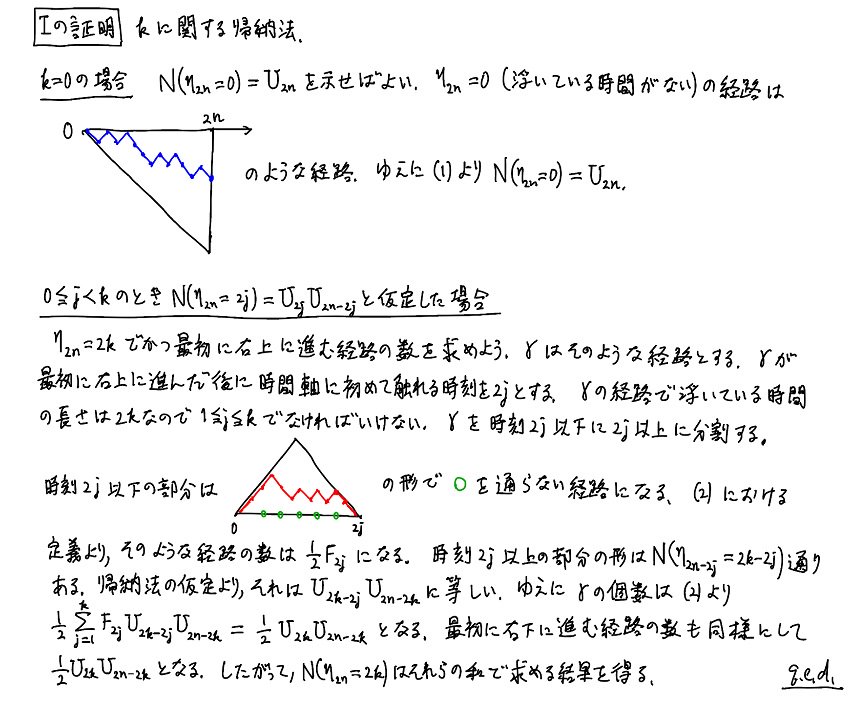 Iの証明 kに関する帰納法.
k=0の場合 N(η_{2n}=0) = U_{2n} を示せばよい. η_{2n}=0 (浮いている時間がない)の経路は
0 2n
のような経路. ゆえに (1)より N(η_{2n}=0) = U_{2n}.
0≦j<kのとき N(η_{2n}=2j) = U_{2j}U_{2n-2j}と仮定した場合
η_{2n}=2kでかつ最初に右上に進む経路の数を求めよう. γはそのような経路とする. γが
最初に右上に進んだ後に時間軸に初めて触れる時刻を2jとする. γの経路で浮いている時間
の長さは2kなので 1≦j≦kでなければいけない. γを時刻2j以下に2j以上に分割する。
時刻2j以下の部分は の形で 0 を通らない経路になる. (2)における
0 2j
定義より, そのような経路の数は ½F_{2j} になる. 時刻2j以上の部分の形は N(η_{2n-2j}=2k-2j)通り
ある. 帰納法の仮定より, それは U_{2k-2j}U_{2n-2k}に等しい. ゆえに γの個数は (2)より
½ Σ_{j=1}^{k} F_{2j}U_{2k-2j}U_{2n-2k} = ½ U_{2k}U_{2n-2k} となる. 最初に右下に進む経路の数も同様にして
½U_{2k}U_{2n-2k} となる. したがって, N(η_{2n}=2k)はそれらの和で求める結果を得る.
q.e.d.